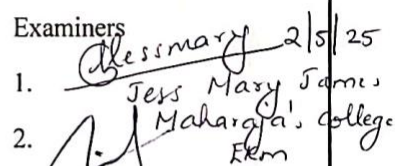 Examiners
Jessmary 2/5/25
1.
Jess Mary James
Maharaja's College
2.
EKM